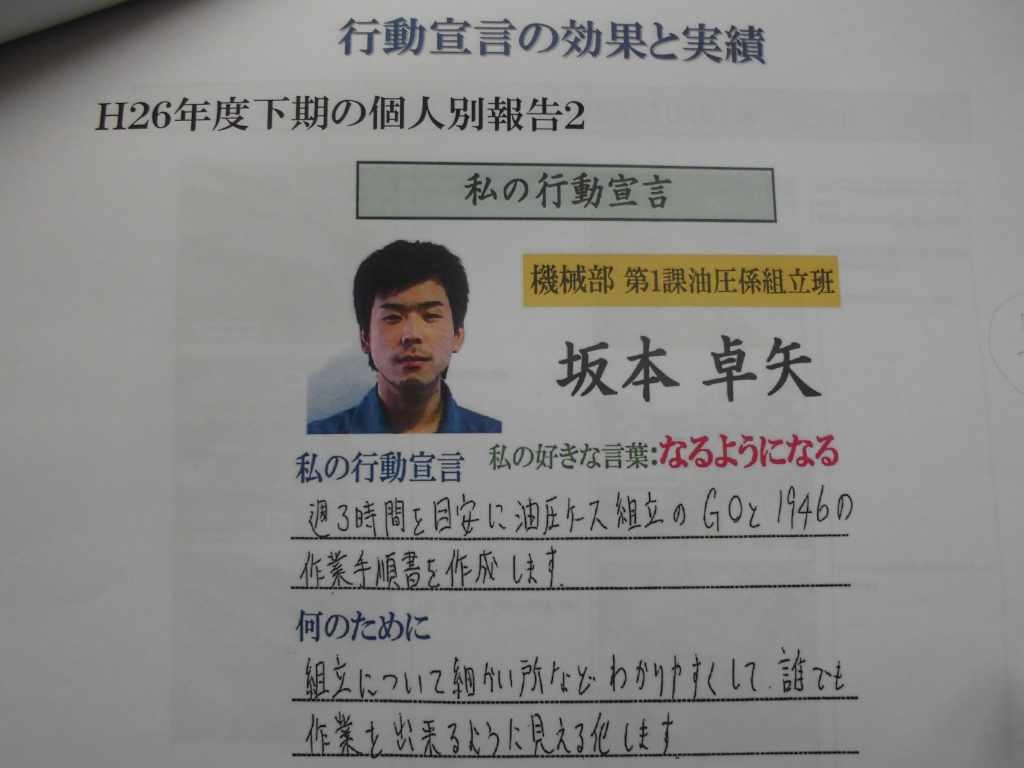 行動宣言の効果と実績
H26年度下期の個人別報告2
私の行動宣言
機械部 第1課油圧係組立班
坂本 卓矢
私の行動宣言 私の好きな言葉:なるようになる
週3時間を目安に油圧ケース組立のG0と1946の
作業手順書を作成します.
何のために
組立について細かい所などわかりやすくして、誰でも
作業を出来るように見える化します